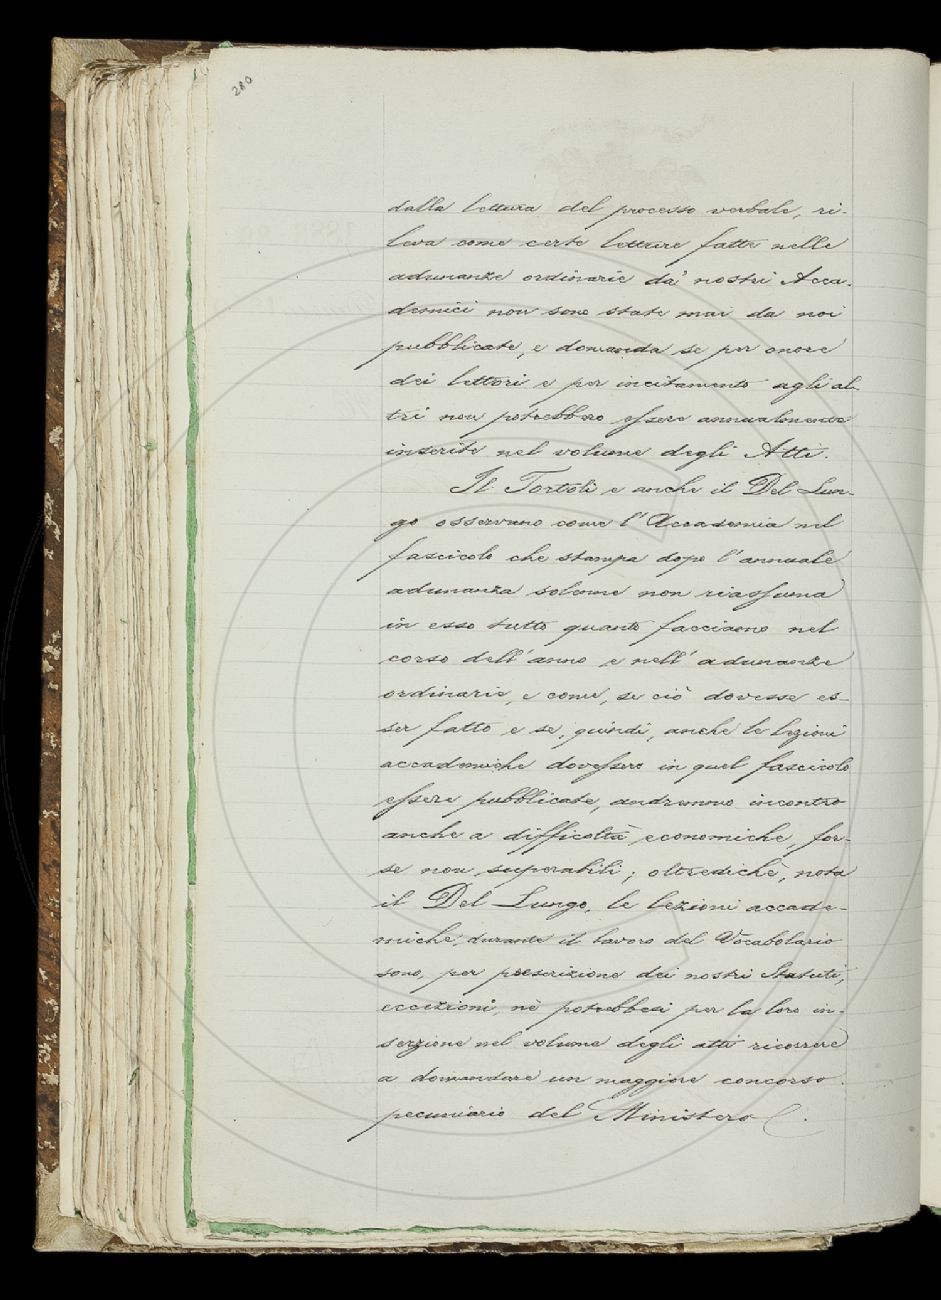 280
dalla lettura del processo verbale, ri-
leva come certe letture fatte nelle
adunanze ordinarie da' nostri Acca-
demici non sono state mai da noi
pubblicate, e domanda se per onore
dei lettori e per incitamento agli al-
tri non potrebbero essere annualmente
inserite nel volume degli Atti.
Il Tortoli e anche il Del Lun-
go osservano come l'Accademia nel
fascicolo che stampa dopo l'annuale
adunanza solenne non riassuma
in esso tutto quanto facciamo nel
corso dell'anno e nell'adunanze
ordinarie, e come, se ciò dovesse es-
ser fatto e se, quindi, anche le lezioni
accademiche dovessero in quel fascicolo
essere pubblicate, andremmo incontro
anche a difficoltà economiche, for-
se non superabili; oltrediché, nota
il Del Lungo, le lezioni accade-
miche, durante il lavoro del Vocabolario
sono, per prescrizione dei nostri Statuti,
eccezioni, nè potrebbesi per la loro in-
serzione nel volume degli atti ricorrere
a domandare un maggiore concorso
pecuniario del Ministero.